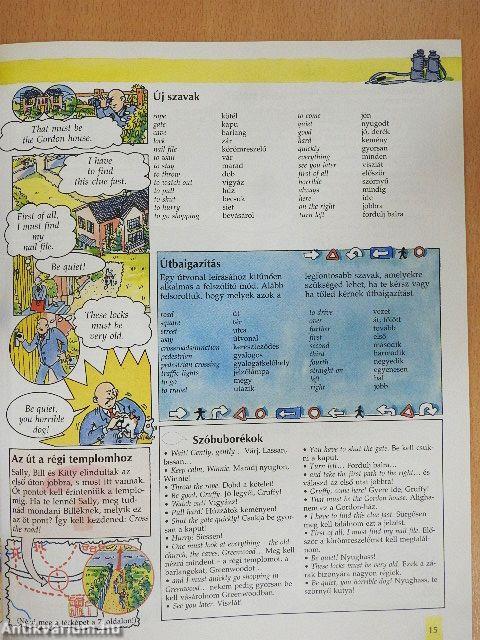 That must be
the Gordon house.
I have
to find
this clue fast.
First of all,
I must find
my
nail file.
Be quiet!
These locks
must be
very old.
Be quiet,
you horrible
dog!
Az út a régi templomhoz
Sally, Bill és Kitty elindultak az
első úton jobbra, s most itt vannak.
Öt pontot kell érinteniük a templo-
mig. Ha te lennél Sally, meg tud-
nád mondani Billéknek, melyik ez
az öt pont? Így kell kezdened: Cross
the road!
(Nézd meg a térképet a 7. oldalon!)
Új szavak
rope kötél
gate kapu
cave barlang
lock zár
nail file körömreszelő
to wait vár
to stay marad
to throw dob
to watch out vigyáz
to pull húz
to shut becsuk
to hurry siet
to go shopping bevásárol
to come jön
quiet nyugodt
good jó, derék
hard kemény
quickly gyorsan
everything minden
see you later viszlát
first of all először
horrible szörnyű
always mindig
here ide
on the right jobbra
turn left fordulj balra
Útbaigazítás
Egy útvonal leírásához kitűnően
alkalmas a felszólító mód. Alább
felsoroltuk, hogy melyek azok a
legfontosabb szavak, amelyekre
szükséged lehet, ha te kérsz vagy
ha tőled kérnek útbaigazítást.
road út
square tér
street utca
way útvonal
crossroads/junction kereszteződés
pedestrian gyalogos
pedestrian crossing gyalogátkelőhely
traffic lights jelzőlámpa
to go megy
to travel utazik
to drive vezet
over át, fölött
further tovább
first első
second második
third harmadik
fourth negyedik
straight on egyenesen
left bal
right jobb
Szóbuborékok
• Wait! Gently, gently... Várj. Lassan,
lassan...
• Keep calm, Winnie. Maradj nyugton,
Winnie!
• Throw the rope. Dobd a kötelet!
• Be good, Gruffy. Jó legyél, Gruffy!
• Watch out! Vigyázz!
• Pull hard. Húzzátok keményen!
• Shut the gate quickly! Csukja be gyor-
san a kaput.
• Hurry! Siessen!
• One must look at everything – the old
church, the caves, Greenwood... Meg kell
nézni mindent – a régi templomot, a
barlangokat, Greenwoodot...
• and I must quickly go shopping in
Greenwood... nekem pedig gyorsan be
kell vásárolnom Greenwoodban.
• See you later. Viszlát!
• You have to shut the gate. Be kell csuk-
ni a kaput.
• Turn left... Fordulj balra...
• and take the first path to the right... és
válaszd az első utat jobbra!
• Gruffy, come here! Gyere ide, Gruffy!
• That must be the Gordon house. Aligha-
nem ez a Gordon-ház.
• I have to find this clue fast. Sürgősen
meg kell találnom ezt a jelzést.
• First of all, I must find my nail file. Elő-
ször a körömreszelőmet kell megtalál-
nom.
• Be quiet! Nyughass!
• These locks must be very old. Ezek a zá-
rak bizonyára nagyon régiek.
• Be quiet, you horrible dog! Nyughass, te
szörnyű kutya!
15
Antikvarium.hu